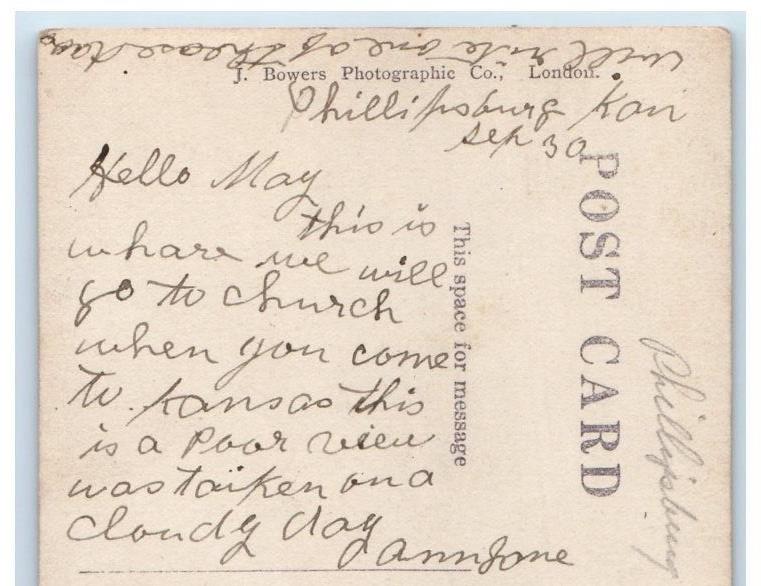 will rite one of thease days
J. Bowers Photographic Co., London.
Phillipsburg Kan
Sep 30
Hello May
this is
whare we will
go to church
when you come
to Kansas this
is a Poor view
was taiken on a
cloudy day
This space for message
POST CARD
Phillipsburg